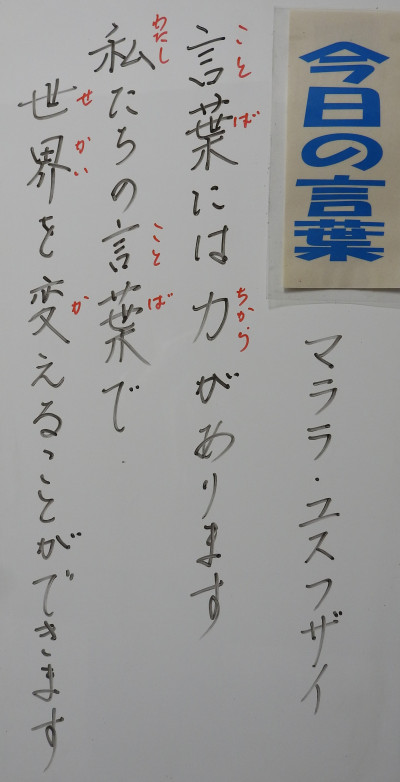 今日の言葉
マララ・ユスフザイ
言葉には力があります
ことば
ちから
私たちの言葉で
わたし
ことば
世界を変えることができます
せかい
か